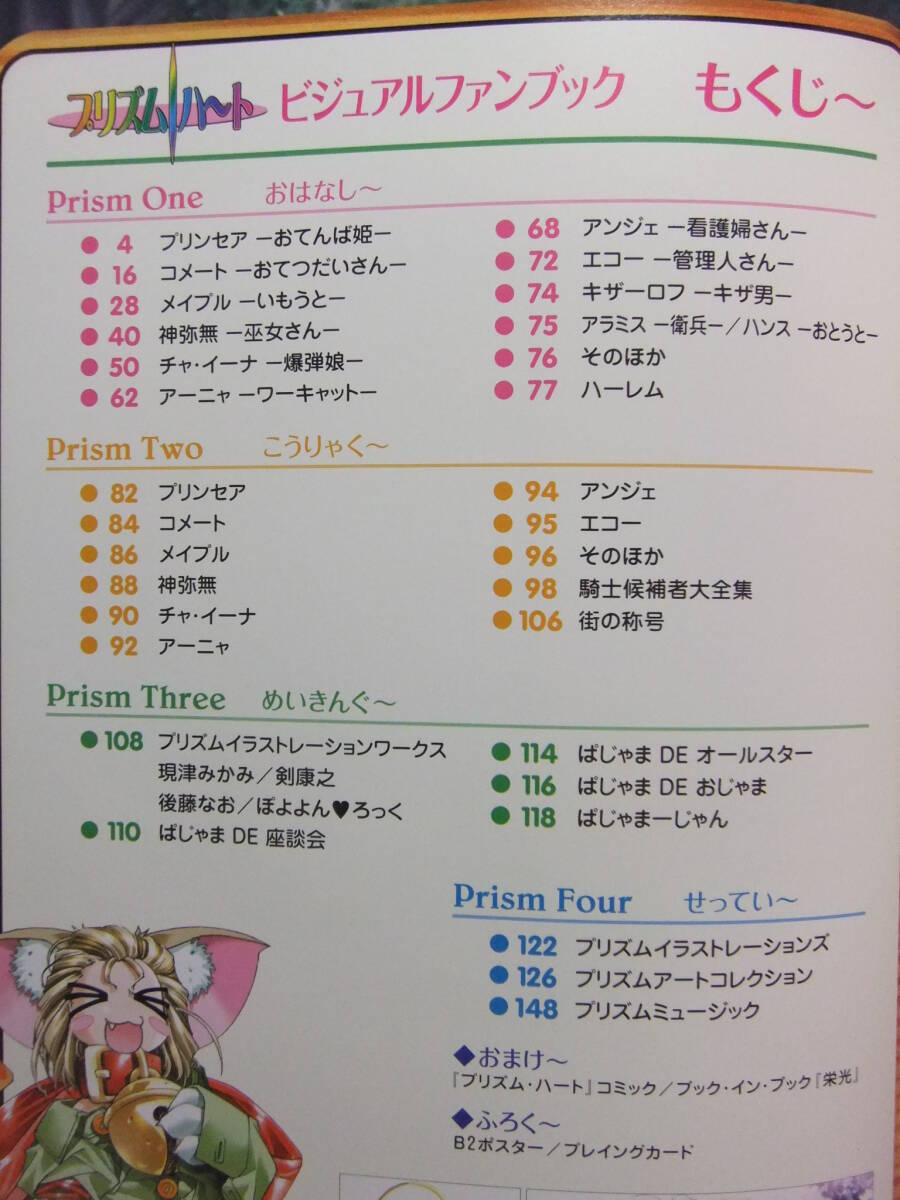 プリズム・ハート ビジュアルファンブック もくじ～
Prism One おはなし～
● 4 プリンセア ーおてんば姫ー
● 16 コメート ーおてつだいさんー
● 28 メイプル ーいもうとー
● 40 神弥無 ー巫女さんー
● 50 チャ・イーナ ー爆弾娘ー
● 62 アーニャ ーワーキャットー
● 68 アンジェ ー看護婦さんー
● 72 エコー ー管理人さんー
● 74 キザーロフ ーキザ男ー
● 75 アラミス ー衛兵ー／ハンス ーおとうとー
● 76 そのほか
● 77 ハーレム
Prism Two こうりゃく～
● 82 プリンセア
● 84 コメート
● 86 メイプル
● 88 神弥無
● 90 チャ・イーナ
● 92 アーニャ
● 94 アンジェ
● 95 エコー
● 96 そのほか
● 98 騎士候補者大全集
● 106 街の称号
Prism Three めいきんぐ～
● 108 プリズムイラストレーションワークス
現津みかみ／剣康之
後藤なお／ぽよよん♥ろっく
● 110 ぱじゃま DE 座談会
● 114 ぱじゃま DE オールスター
● 116 ぱじゃま DE おじゃま
● 118 ぱじゃまーじゃん
Prism Four せってい～
● 122 プリズムイラストレーションズ
● 126 プリズムアートコレクション
● 148 プリズムミュージック
◆おまけ～
『プリズム・ハート』コミック／ブック・イン・ブック『栄光』
◆ふろく～
B2ポスター／プレイングカード